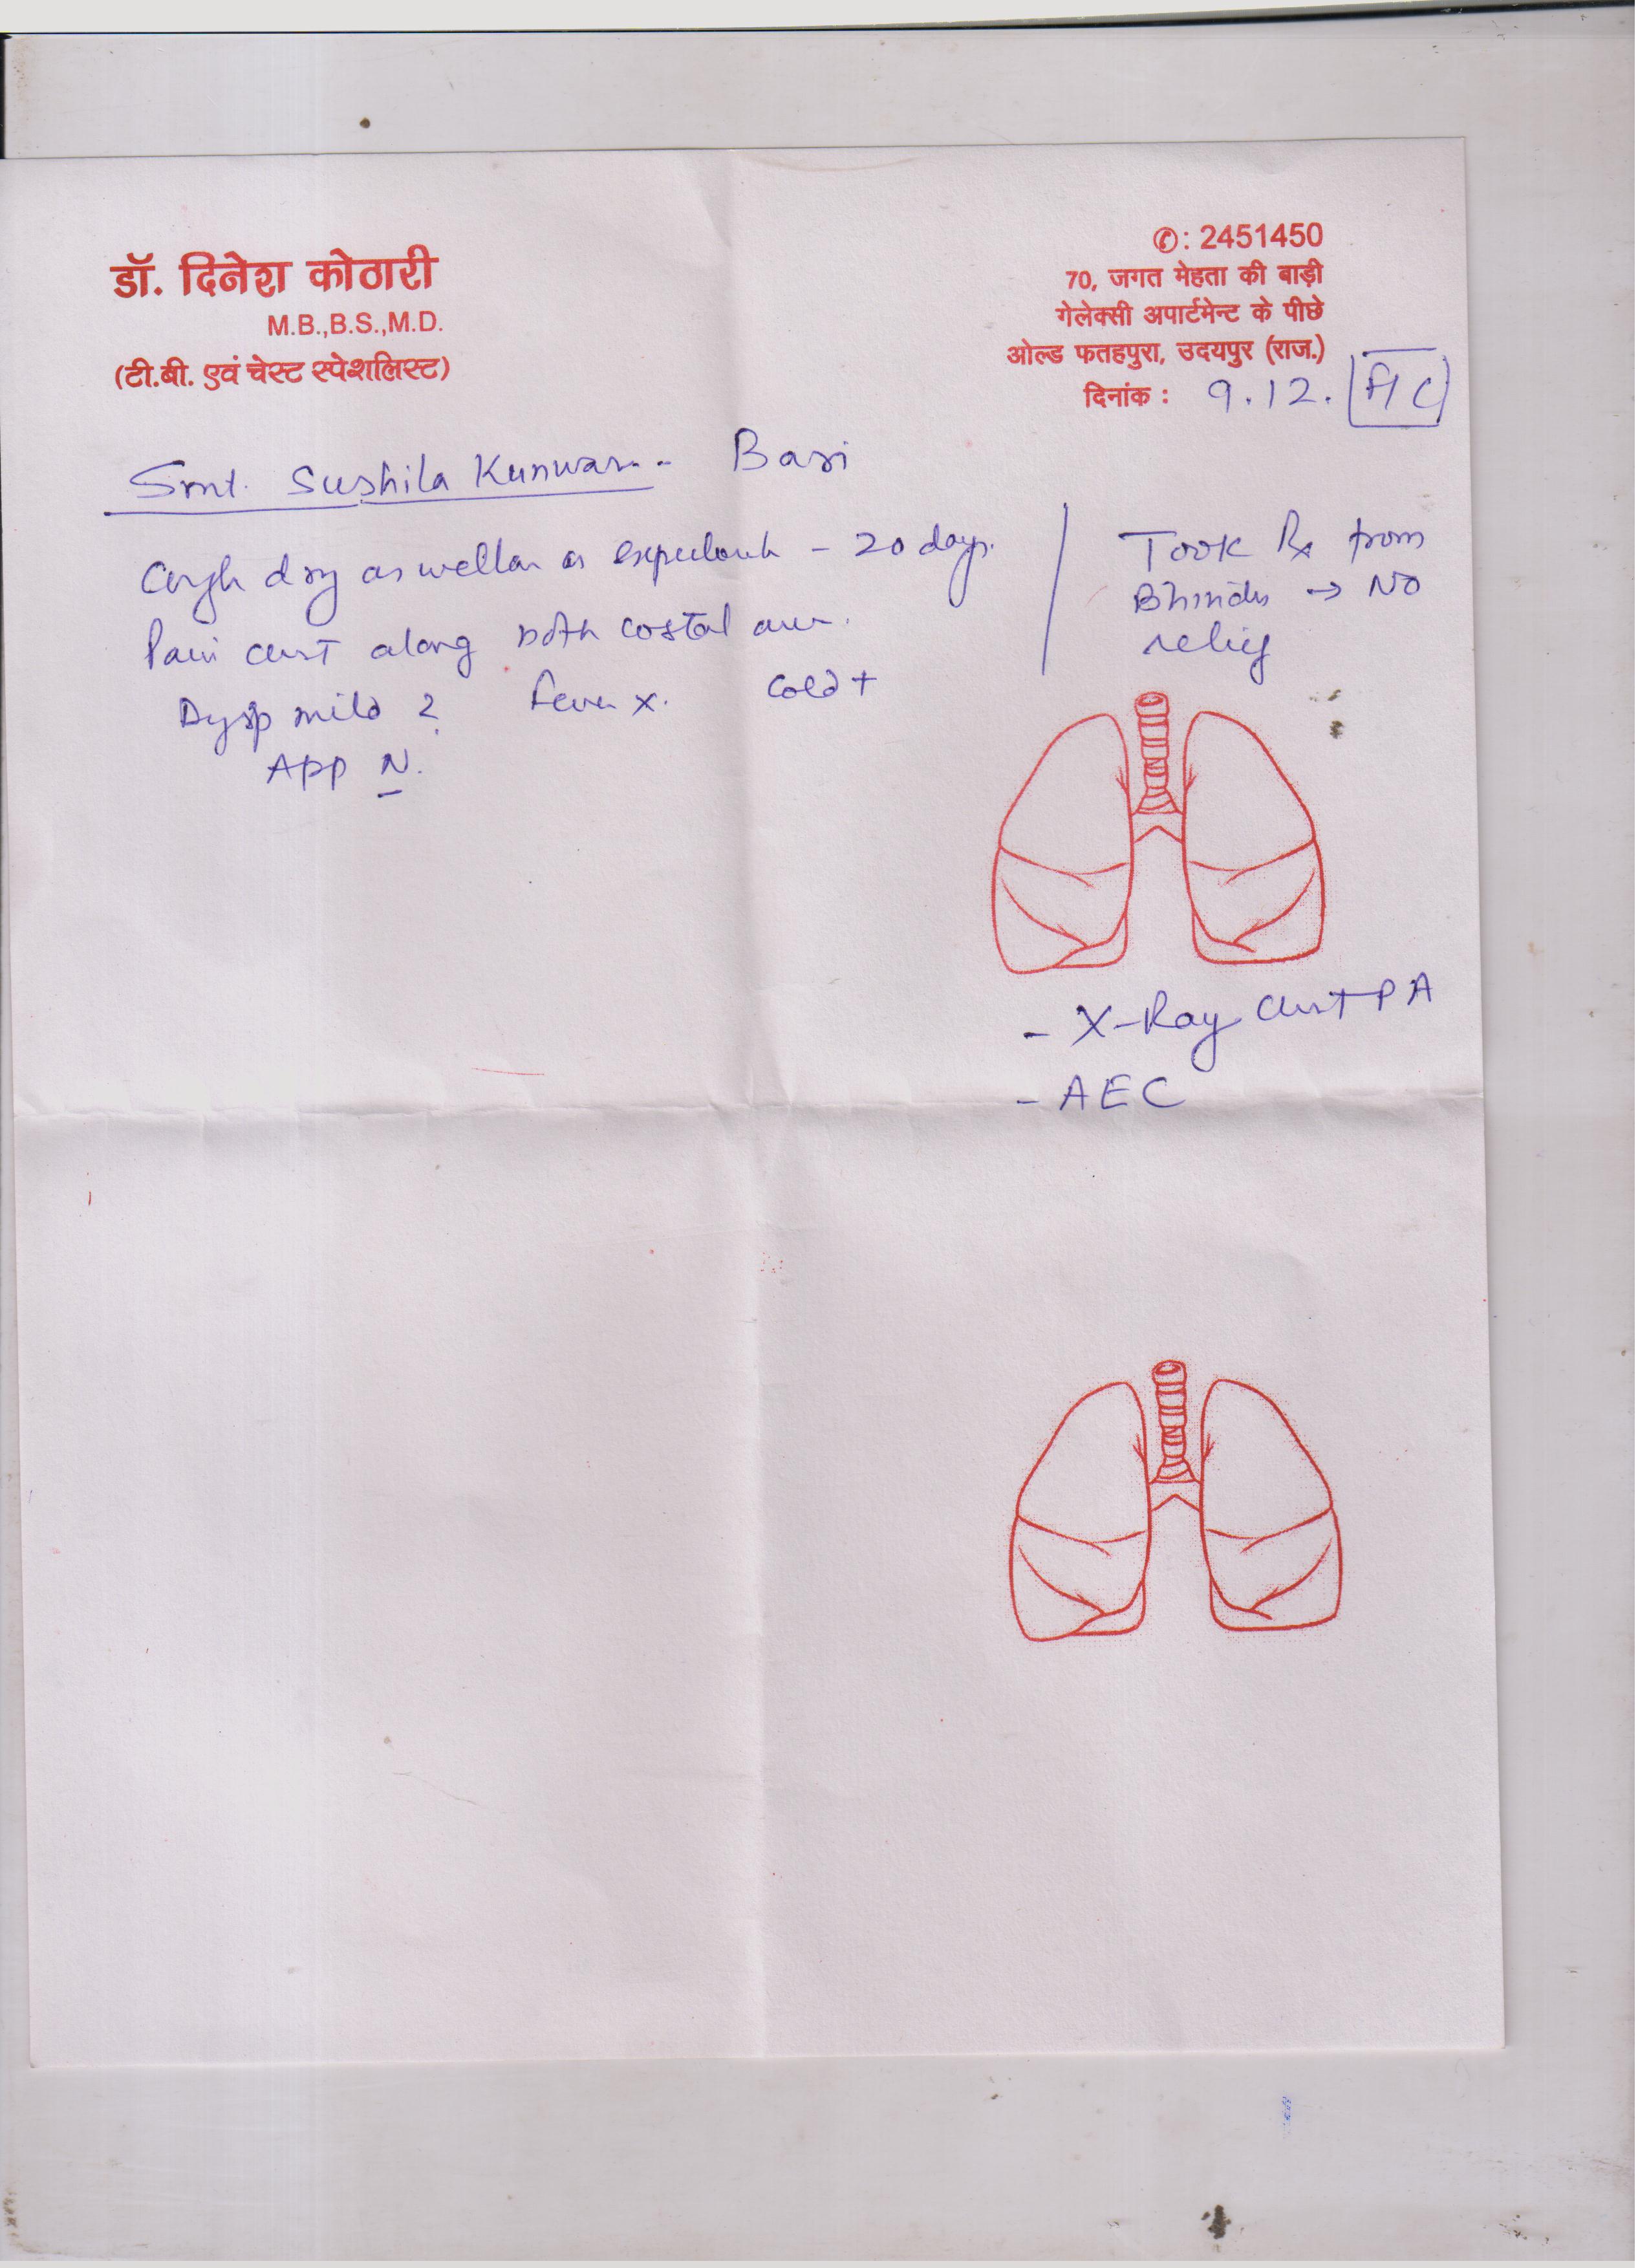 डॉ. दिनेश कोठारी
M.B.,B.S.,M.D.
(टी.बी. एवं चेस्ट स्पेशलिस्ट)
✆: 2451450
70, जगत मेहता की बाड़ी
गेलेक्सी अपार्टमेन्ट के पीछे
ओल्ड फतहपुरा, उदयपुर (राज.)
दिनांक : 9.12.
Smt. Sushila Kunwar - Bari
Cough dry as well as expectorant - 20 days.
Pain chest along both costal area.
Dysp mild ? Fever x. Cold +
App N.
Took Rx from
Bhinder → No
relief
- X-Ray Chest PA
- AEC